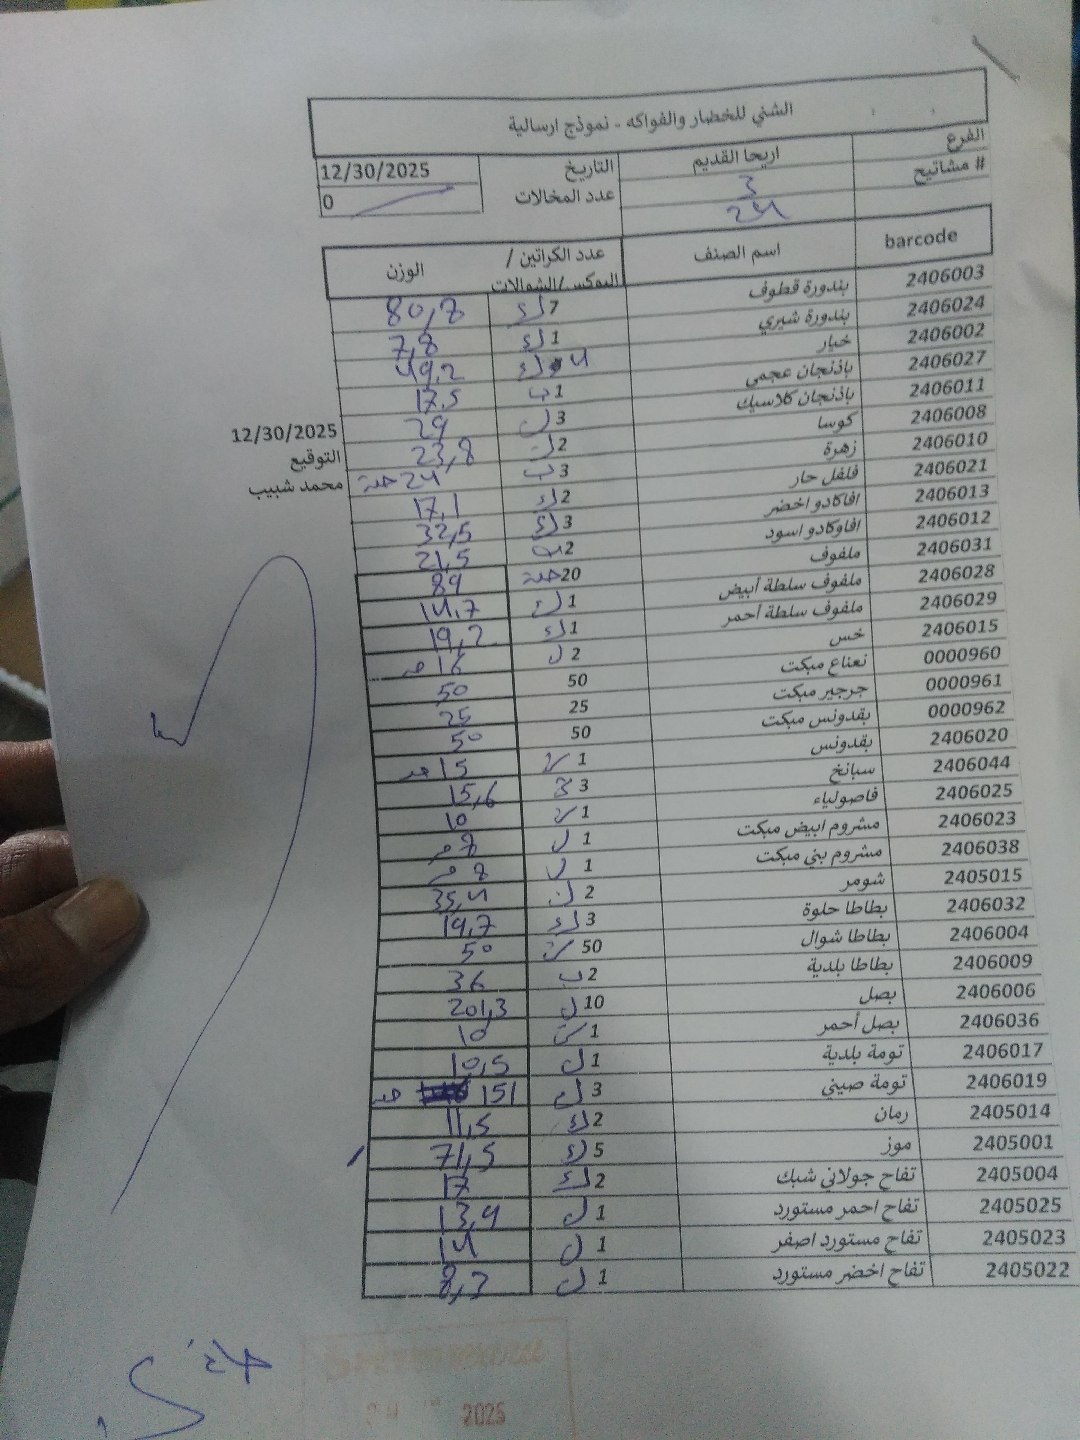 الشني للخضار والفواكه - نموذج ارسالية
الفرع اريحا القديم التاريخ 12/30/2025
# مشاتيح 3 عدد المخالات 0
24
barcode اسم الصنف عدد الكراتين / البوكس/الشوالات الوزن
2406003 بندورة قطوف 7 80,8
2406024 بندورة شيري 1 7,8
2406002 خيار 4 49,2
2406027 باذنجان عجمي 1 ب 17,5
2406011 باذنجان كلاسيك 3 29
2406008 كوسا 2 23,8
2406010 زهرة 3 ب 24 حبة
2406021 فلفل حار 2 17,1
2406013 افاكادو اخضر 3 32,5
2406012 افاوكادو اسود 2 ب 21,5
2406031 ملفوف 20 حبة 89
2406028 ملفوف سلطة أبيض 1 14,7
2406029 ملفوف سلطة أحمر 1 19,2
2406015 خس 2 16
0000960 نعناع مبكت 50 50
0000961 جرجير مبكت 25 25
0000962 بقدونس مبكت 50 50
2406020 بقدونس 1 15
2406044 سبانخ 3 15,6
2406025 فاصولياء 1 10
2406023 مشروم ابيض مبكت 1 8
2406038 مشروم بني مبكت 1 8
2405015 شومر 2 35,4
2406032 بطاطا حلوة 3 19,7
2406004 بطاطا شوال 50 50
2406009 بطاطا بلدية 2 ب 36
2406006 بصل 10 201,3
2406036 بصل أحمر 1 10
2406017 تومة بلدية 1 10,5
2406019 تومة صيني 3 151
2405014 رمان 2 11,5
2405001 موز 5 71,5
2405004 تفاح جولاني شبك 2 17
2405025 تفاح احمر مستورد 1 13,9
2405023 تفاح مستورد اصفر 1 14
2405022 تفاح اخضر مستورد 1 8,3
12/30/2025
التوقيع
محمد شبيب
2025